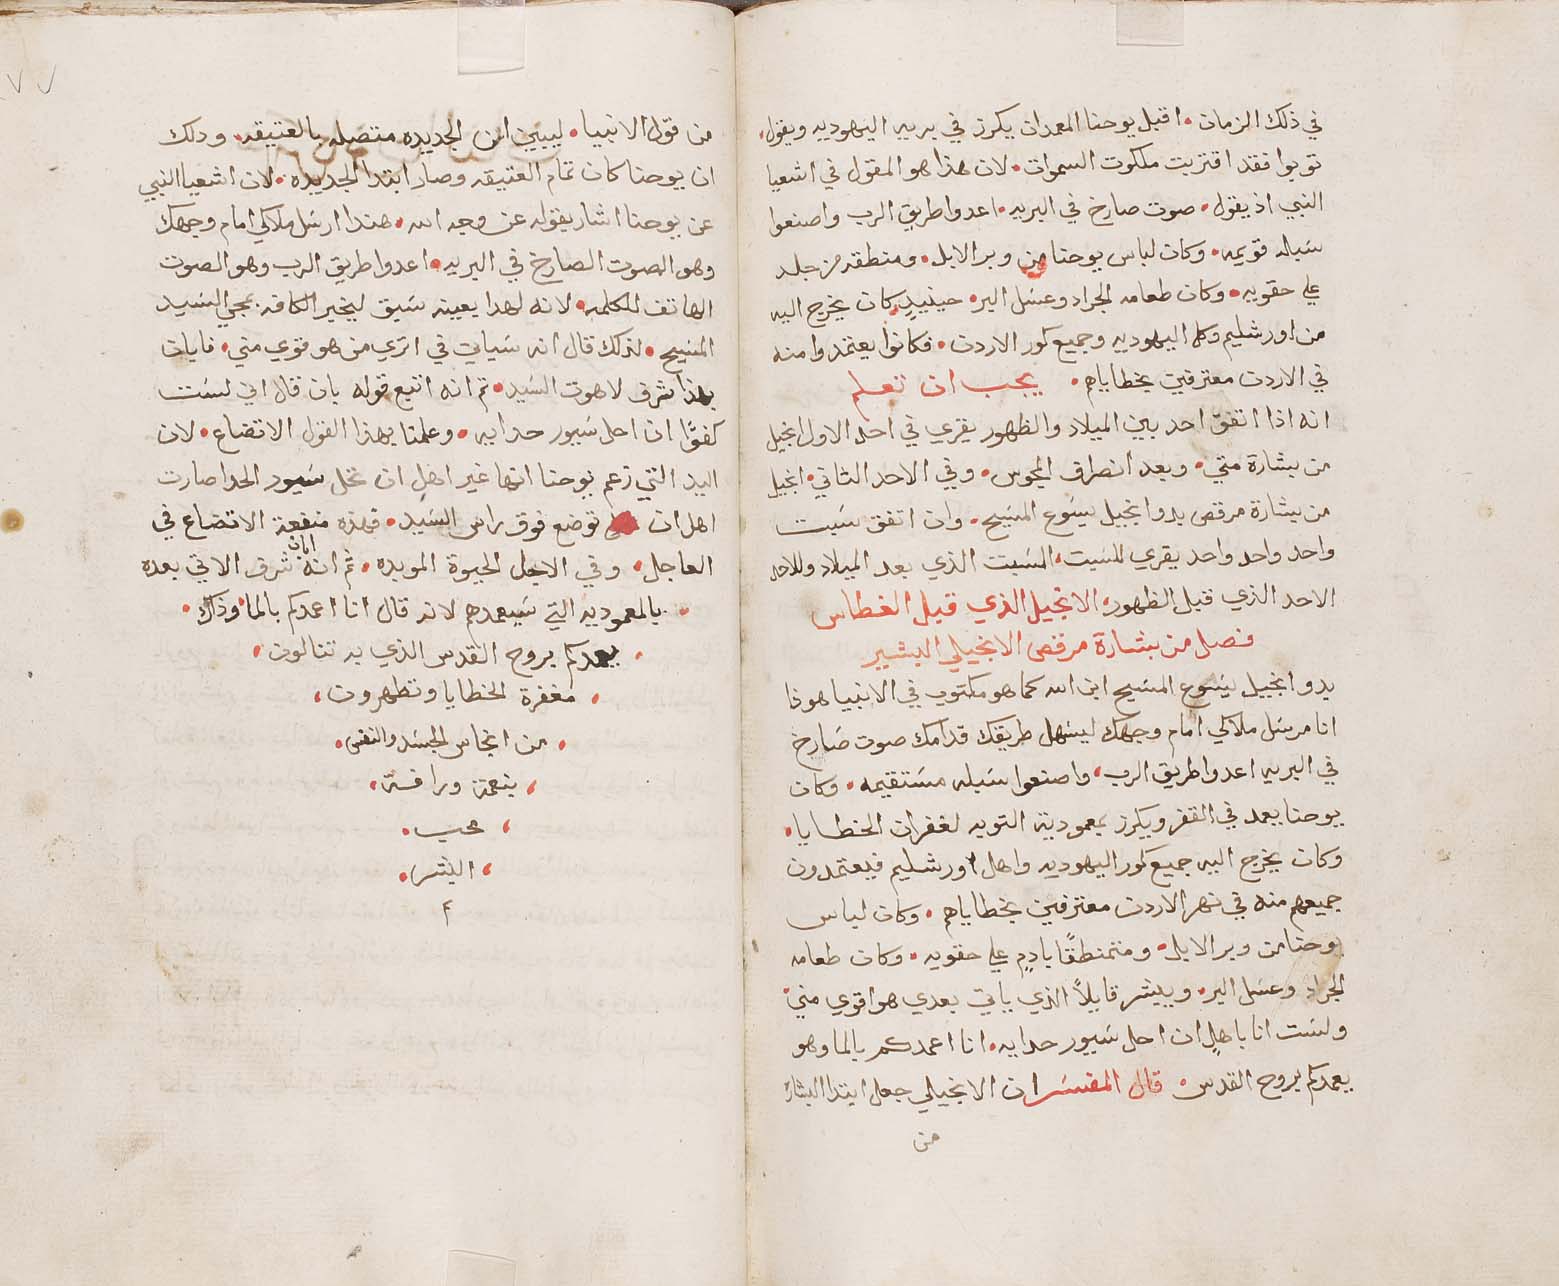 في ذلك الزمان • اقبل يوحنا المعمدان يكرز في بريه اليهوديه ويقول•
توبوا فقد اقتربت ملكوت السموات • لان هذا هو المقول في اشعيا
النبي اذ يقول • صوت صارخ في البريه • اعدوا طريق الرب واصنعوا
سبله قويمه • وكان لباس يوحنا من وبر الابل • ومنطقه من جلد
علي حقويه • وكان طعامه الجراد وعسل البر • حينيذٍ كان يخرج اليه
من اورشليم وكل اليهوديه وجميع كور الاردن • فكانوا يعتمدوا منه
في الاردن معترفين بخطاياهم • يجب ان تعلم
انه اذا اتفق احد بين الميلاد والظهور يقري في احد الاول انجيل
من بشارة متي • وبعد انصراف المجوس • وفي الاحد الثاني • انجيل
من بشارة مرقص بدو انجيل يسوع المسيح • وان اتفق سبت
واحد واحد واحد يقري للسبت • السبت الذي بعد الميلاد وللاحد
الاحد الذي قبل الظهور • الانجيل الذي قبل الغطاس
فصل من بشارة مرقص الانجيلي البشير
بدو انجيل يسوع المسيح ابن الله كما هو مكتوب في الانبيا هوذا
انا مرسل ملاكي امام وجهك ليسهل طريقك قدامك صوت صارخ
في البريه اعدوا طريق الرب • واصنعوا سبله مستقيمه • وكان
يوحنا يعمد في القفر ويكرز بمعمودية التوبه لغفران الخطايا•
وكان يخرج اليه جميع كور اليهوديه واهل اورشليم فيعتمدون
جميعهم منه في نهر الاردن معترفين بخطاياهم • وكان لباس
يوحنا من وبر الابل • ومتمنطقًا بادمٍ علي حقويه • وكان طعامه
الجراد وعسل البر • ويبشر قايلاً الذي ياتي بعدي هو اقوي مني•
ولست انا باهلٍ ان احل سيور حدايه • انا اعمدكم بالما وهو
يعمدكم بروح القدس • قال المفسر ان الانجيلي جعل ابتدا البشارة
من
من قول الانبيا • ليبين ان الجديده متصله بالعتيقه • ودلك
ان يوحنا كان تمام العتيقه وصار ابتدا الجديده • لان اشعيا النبي
عن يوحنا اشار بقوله عن وجه الله • هندا ارسل ملاكي امام وجهك
وهو الصوت الصارخ في البريه • اعدوا طريق الرب وهو الصوت
الهاتف للكلمه • لانه لهدا بعينه سبق ليخبر الكافه بمجي السيد
المسيح • لذلك قال انه سياتي في اتري من هو قوي مني • فابان
بهذا شرف لاهوت السيد • تم انه اتبع قوله بان قال اني لست
كفوًا ان احل سيور حدايه • وعلمنا بهذا القول الاتضاع • لان
اليد التي زعم يوحنا انها غير اهلٍ ان تحل سيور الحدا صارت
اهل ان توضع فوق راس السيد • فهذه منفعة الاتضاع في
العاجل • وفي الاجل الحيوة الموبده • ثم انه ابان شرف الاتي بعده
• بالمعموديه التي سيعمدهم لانه قال انا اعمدكم بالما وذاك •
• يعمدكم بروح القدس الذي به تنالون •
• مغفرة الخطايا وتطهرون •
• من انجاس الجسد والنفس •
• بنعمة ورافة •
• محب •
• البشر •
م